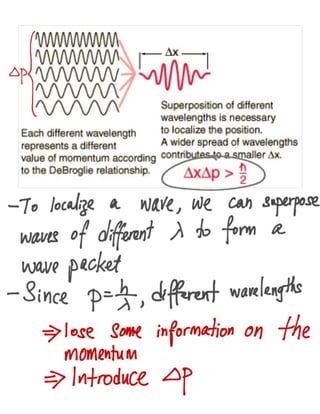 Δx
Δp
Superposition of different
wavelengths is necessary
to localize the position.
A wider spread of wavelengths
contributes to a smaller Δx.
Each different wavelength
represents a different
value of momentum according
to the DeBroglie relationship.
ΔxΔp > ħ/2
- To localize a wave, we can superpose
waves of different λ to form a
wave packet
- Since p = h/λ, different wavelengths
⇒ lose some information on the
momentum
⇒ Introduce ΔP